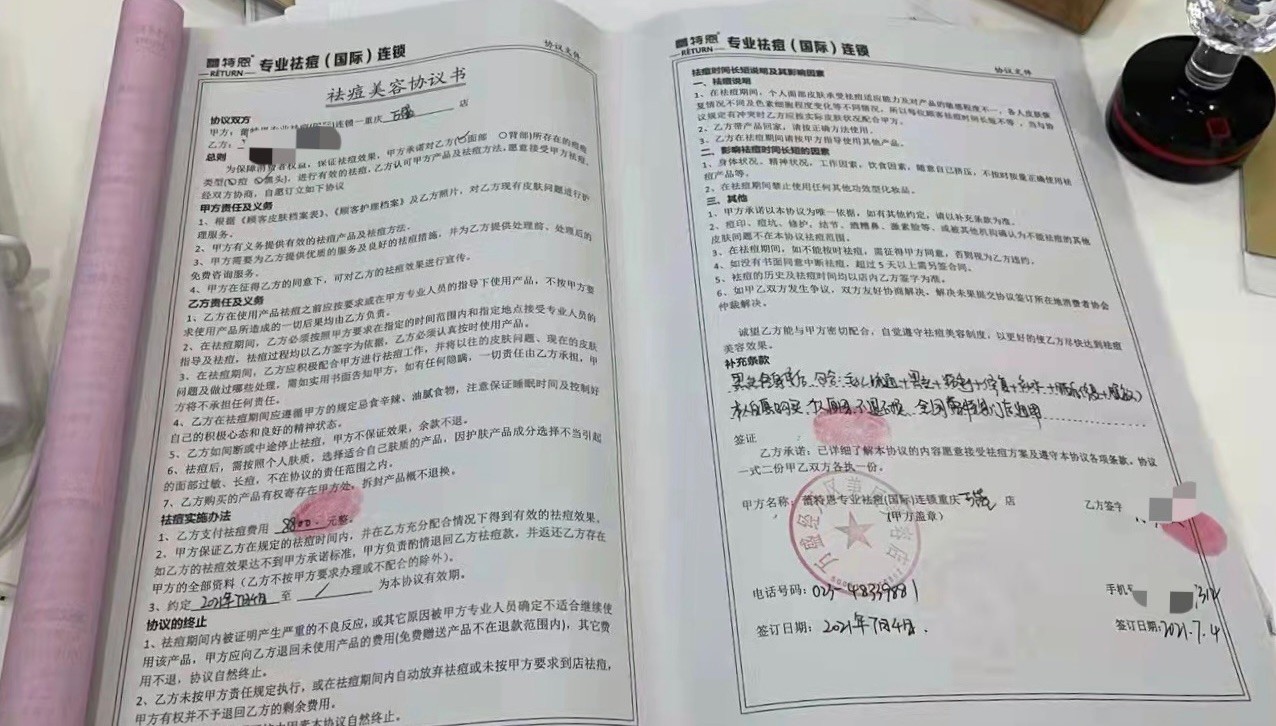 蕾特恩 专业祛痘（国际）连锁
RETURN
协议文件
祛痘美容协议书
协议双方
连锁一重庆 万盛 店
乙方：
总则
为保障消费者权益，保证祛痘效果，甲方承诺对乙方(面部 〇背部)所存在的痘痘
类型(痘 黑头)，进行有效的祛痘，乙方认可甲方产品及祛痘方法，愿意接受甲方祛痘。
经双方协商，自愿订立如下协议
甲方责任及义务
1、根据《顾客皮肤档案表》、《顾客护理档案》及乙方照片，对乙方现有皮肤问题进行护
理服务。
2、甲方有义务提供有效的祛痘产品及祛痘方法。
3、甲方需要为乙方提供优质的服务及良好的祛痘措施，并为乙方提供处理前，处理后的
免费咨询服务。
4、甲方在征得乙方的同意下，可对乙方的祛痘效果进行宣传。
乙方责任及义务
1、乙方在使用产品祛痘之前应按要求或在甲方专业人员的指导下使用产品，不按甲方要
求使用产品所造成的一切后果均由乙方负责。
2、在祛痘期间，乙方必须按照甲方要求在指定的时间范围内和指定地点接受专业人员的
指导及祛痘，祛痘过程均以乙方签字为依据，乙方必须认真按时使用产品。
3、在祛痘期间，乙方应积极配合甲方进行祛痘工作，并将以往的皮肤问题、现在的皮肤
问题及做过哪些处理，需如实用书面告知甲方，如有任何隐瞒，一切责任由乙方承担，甲
方将不承担任何责任。
4、乙方在祛痘期间应遵循甲方的规定忌食辛辣、油腻食物，注意保证睡眠时间及控制好
自己的积极心态和良好的精神状态。
5、乙方如间断或中途停止祛痘，甲方不保证效果，余款不退。
6、祛痘后，需按照个人肤质，选择适合自己肤质的产品，因护肤产品成分选择不当引起
的面部过敏、长痘，不在协议的责任范围之内。
7、乙方购买的产品有权寄存在甲方处，拆封产品概不退换。
祛痘实施办法
1、乙方支付祛痘费用 元整。
2、甲方保证乙方在规定的祛痘时间内，并在乙方充分配合情况下得到有效的祛痘效果，
如乙方的祛痘效果达不到甲方承诺标准，甲方负责酌情退回乙方祛痘款，并返还乙方存在
甲方的全部资料（乙方不按甲方要求办理或不配合的除外）。
3、约定 2021年7月4日 至 / 为本协议有效期。
协议的终止
1、祛痘期间内被证明产生严重的不良反应，或其它原因被甲方专业人员确定不适合继续使
用该产品，甲方应向乙方退回未使用产品的费用(免费赠送产品不在退款范围内)，其它费
用不退，协议自然终止。
2、乙方未按甲方责任规定执行，或在祛痘期间内自动放弃祛痘或未按甲方要求到店祛痘，
甲方有权并不予退回乙方的剩余费用。
因素本协议自然终止。
蕾特恩 专业祛痘（国际）连锁
RETURN
协议文件
祛痘时间长短说明及其影响因素
一、祛痘说明
1、在祛痘期间，个人面部皮肤承受祛痘适应能力及对产品的敏感程度不一，各人皮肤康
复情况不同及色素细胞程度变化等不同情况，所以每位顾客祛痘时间长短不等，当与协
议规定有冲突时乙方应按实际皮肤状况配合甲方。
2、乙方带产品回家，请按正确方法使用。
3、乙方在祛痘期间请按甲方指导使用其他产品。
二、影响祛痘时间长短的因素
1、身体状况，精神状况，工作因素，饮食因素，随意自己挤压，不按时按量正确使用祛
痘产品等。
2、在祛痘期间禁止使用任何其他功效型化妆品。
三、其他
1、甲方承诺以本协议为唯一依据，如有其他约定，请以补充条款为准。
2、痘印、痘坑、修护、结节、酒糟鼻、激素脸等，或被其他机构确认为不能祛痘的其他
皮肤问题不在本协议祛痘范围。
3、在祛痘期间，如不能按时祛痘，需征得甲方同意，否则视为乙方违约。
4、如没有书面同意中断祛痘，超过5天以上需另签合同。
5、祛痘的历史及祛痘时间均以店内乙方签字为准。
6、如甲乙双方发生争议，双方友好协商解决，解决未果提交协议签订所在地消费者协会
仲裁解决。
诚望乙方能与甲方密切配合，自觉遵守祛痘美容制度，以更好的使乙方尽快达到祛痘
美容效果。
补充条款
签证
乙方承诺：已详细了解本协议的内容愿意接受祛痘方案及遵守本协议各项条款，协议
一式二份甲乙双方各执一份。
甲方名称：蕾特恩专业祛痘(国际)连锁重庆 万盛 店 乙方签字
(甲方盖章)
电话号码：023-48339881 手机号
签订日期：2021年7月4日. 签订日期:2021.7.4